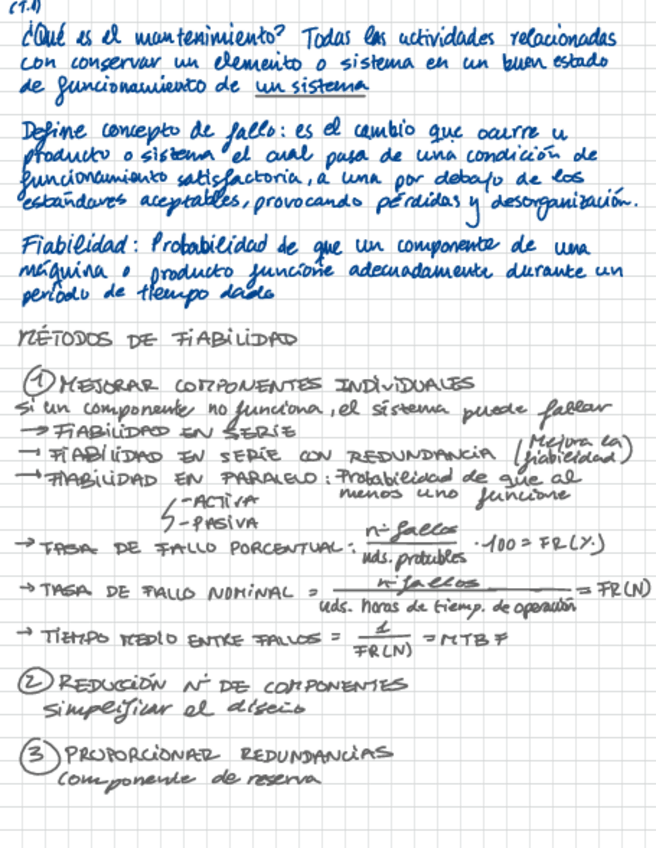 (T.1)
¿Qué es el mantenimiento? Todas las actividades relacionadas
con conservar un elemento o sistema en un buen estado
de funcionamiento de un sistema
Define concepto de fallo: es el cambio que ocurre u
producto o sistema el cual pasa de una condición de
funcionamiento satisfactoria, a una por debajo de los
estándares aceptables, provocando pérdidas y desorganización.
Fiabilidad: Probabilidad de que un componente de una
máquina o producto funcione adecuadamente durante un
período de tiempo dado
MÉTODOS DE FIABILIDAD
① MEJORAR COMPONENTES INDIVIDUALES
si un componente no funciona, el sistema puede fallar
→ FIABILIDAD EN SERIE
→ FIABILIDAD EN SERIE CON REDUNDANCIA (Mejora la fiabilidad)
→ FIABILIDAD EN PARALELO: Probabilidad de que al
menos uno funcione
- ACTIVA
- PASIVA
→ TASA DE FALLO PORCENTUAL: nº fallos / uds. probables · 100 = FR(%)
→ TASA DE FALLO NOMINAL = nº fallos / uds. horas de tiemp. de operación = FR(N)
→ TIEMPO MEDIO ENTRE FALLOS = 1 / FR(N) = MTBF
② REDUCCIÓN Nº DE COMPONENTES
simplificar el diseño
③ PROPORCIONAR REDUNDANCIAS
componente de reserva